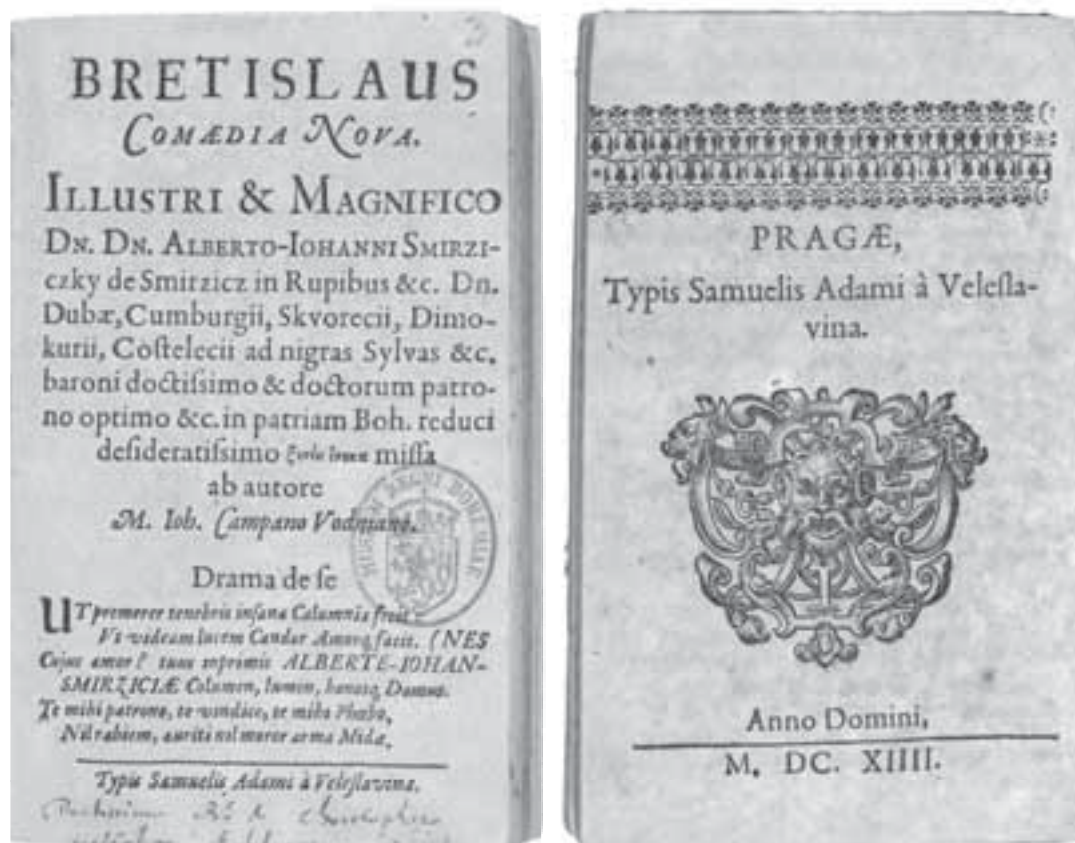 BRETISLAUS
COMÆDIA NOVA.
ILLUSTRI & MAGNIFICO
DN. DN. ALBERTO-IOHANNI SMIRZI-
czky de Smirzicz in Rupibus &c. Dn.
Dubæ, Cumburgii, Skvorecii, Dimo-
kurii, Coſtelecii ad nigras Sylvas &c.
baroni doctiſsimo & doctorum patro-
no optimo &c. in patriam Boh. reduci
deſideratiſsimo miſſa
ab autore
M. Ioh. Campano Vodniano.
Drama de ſe
UT premerer tenebris inſana Calumnia fecit
Ut videam lucem Candor Amorq; facit. (NES
Cujus amor? tuus inprimis ALBERTE-IOHAN-
SMIRZICIÆ Columen, lumen, honosq; Domus.
Te mihi patrono, te vindice, te mihi Phœbo,
Nil rabiem, auriti nil moror arma Midæ.
Typis Samuelis Adami à Veleſlavina.
MUSEUM REGNI BOHEMIAE
PRAGÆ,
Typis Samuelis Adami à Veleſla-
vina.
Anno Domini,
M. DC. XIIII.